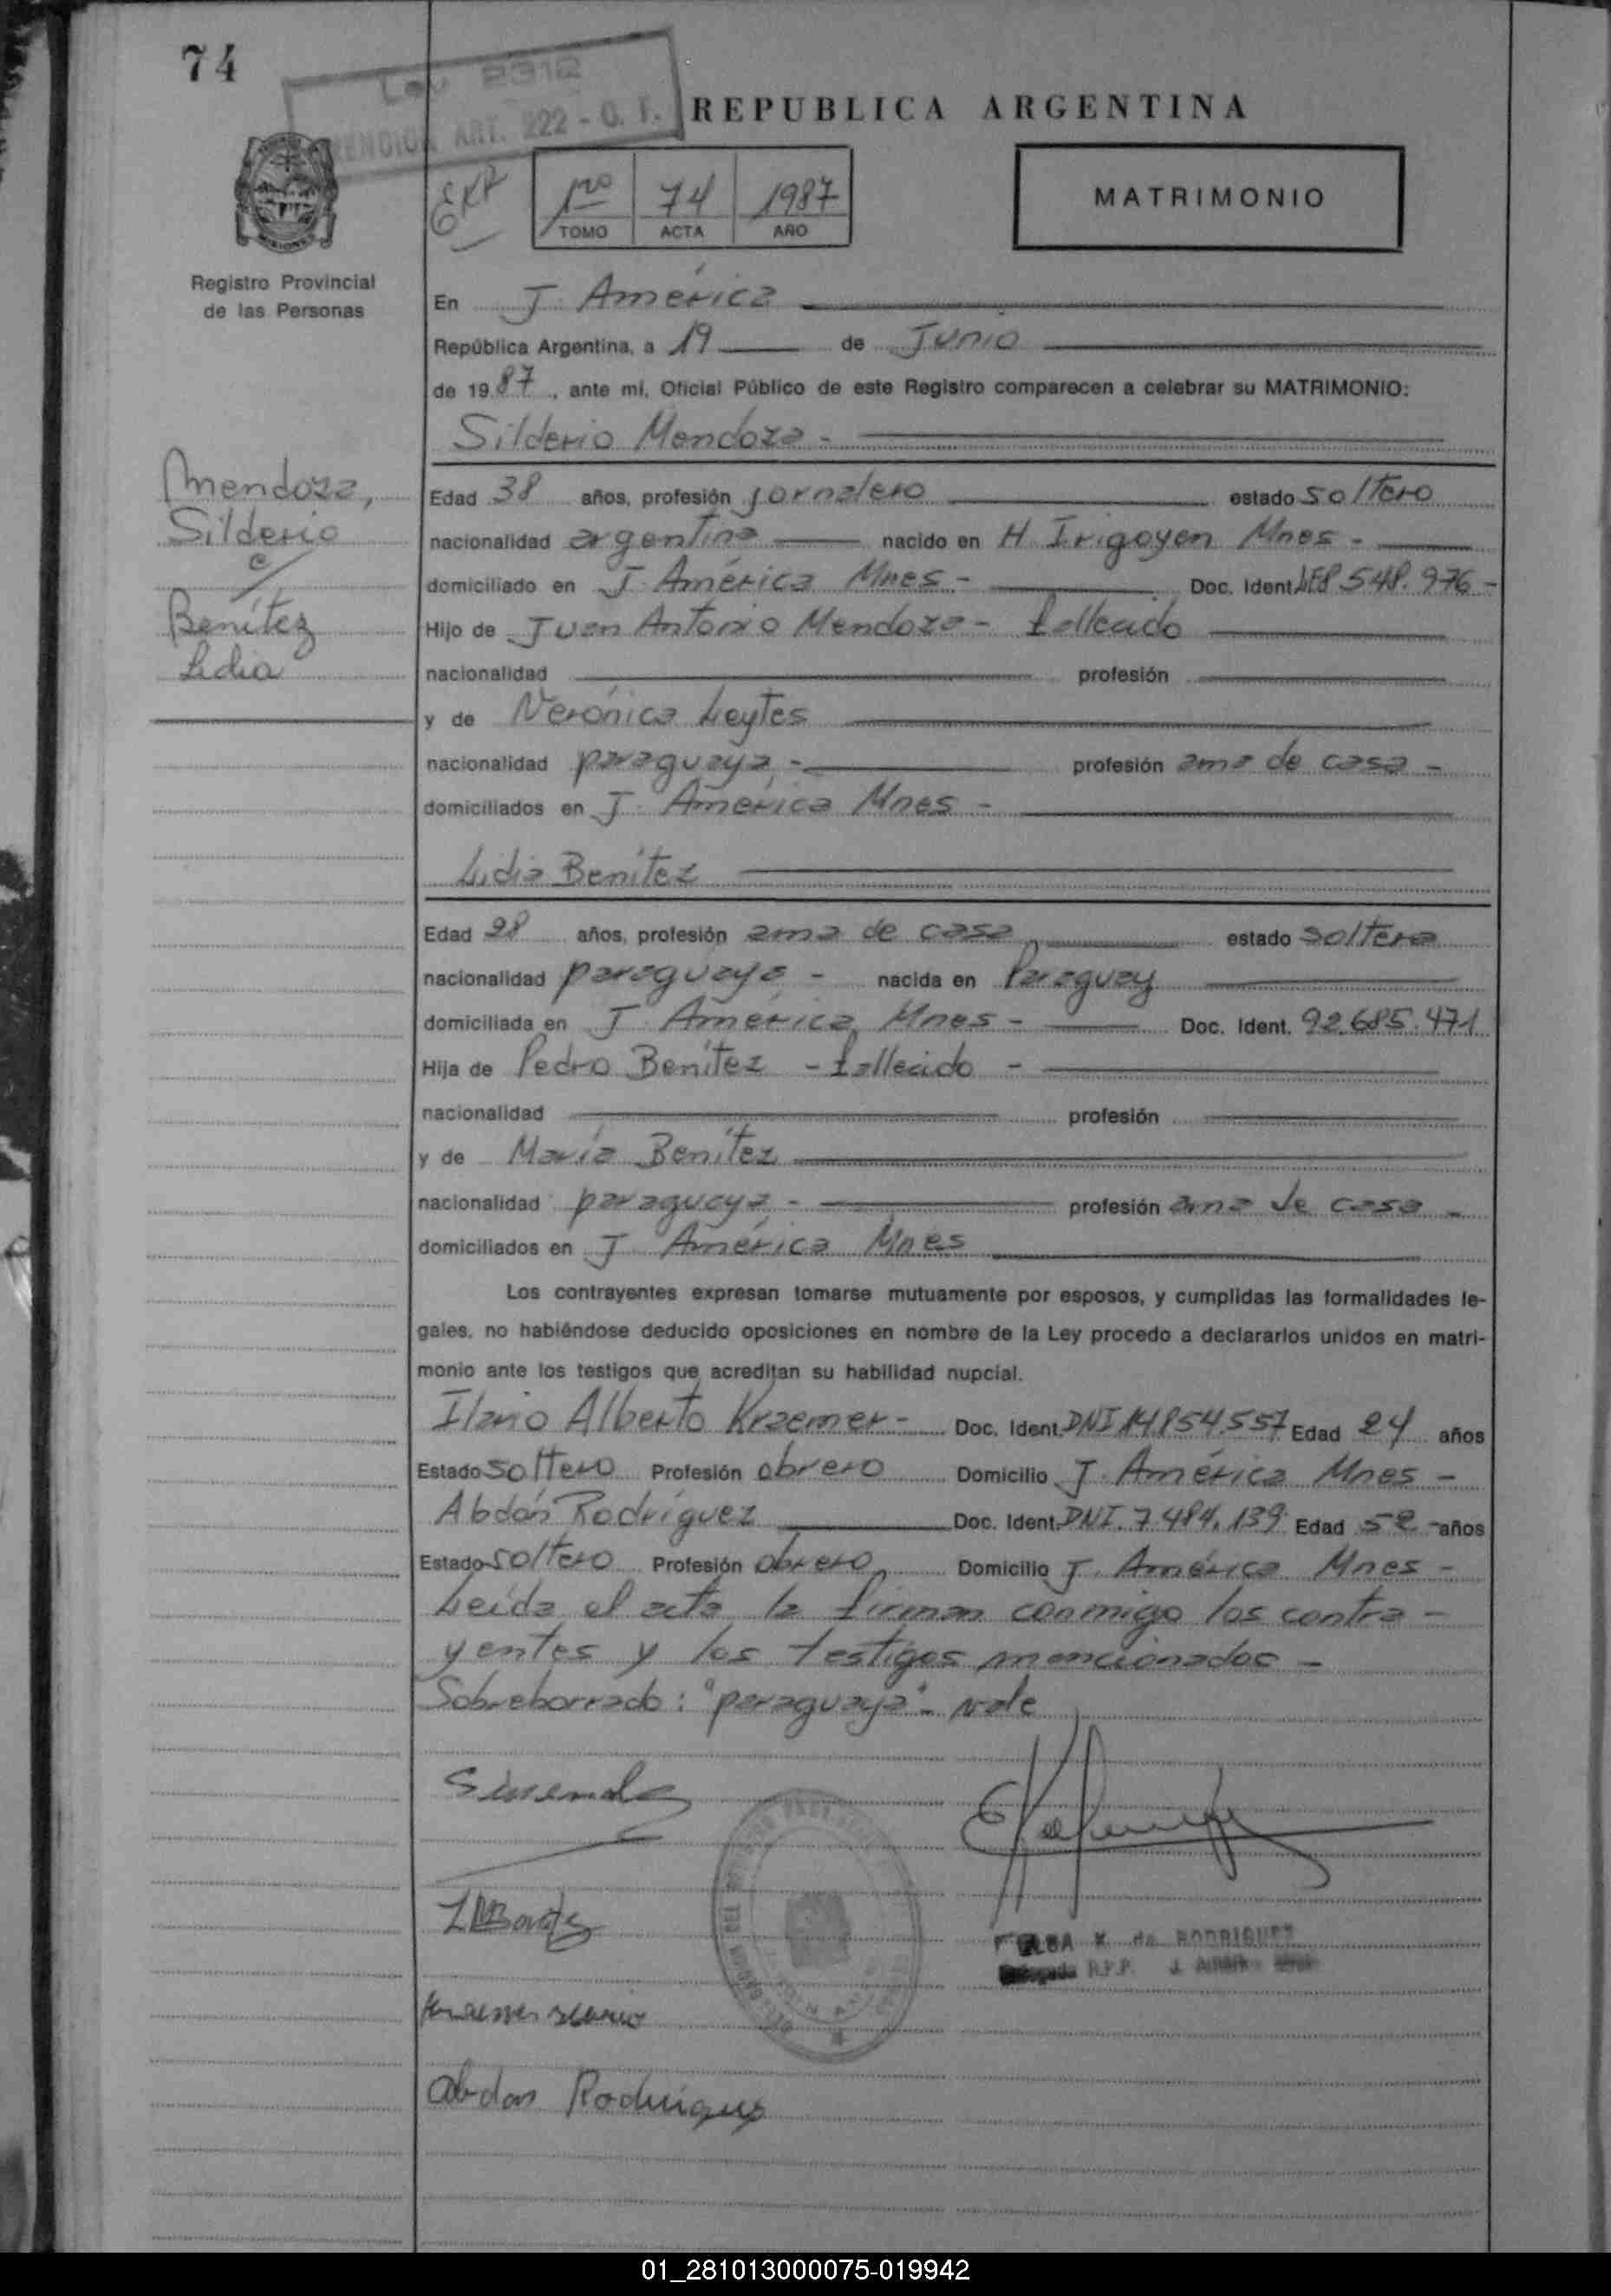 74
Ley 2312
ART. 222 - O. F.
REPUBLICA ARGENTINA
1ro 74 1987
TOMO ACTA AÑO
MATRIMONIO
MISIONES
Registro Provincial
de las Personas
En J. América
República Argentina, a 19 de Junio
de 1987, ante mi, Oficial Público de este Registro comparecen a celebrar su MATRIMONIO:
Silderio Mendoza -
Mendoza,
Silderio
c/
Benítez
Lidia
Edad 38 años, profesión jornalero estado soltero
nacionalidad argentina nacido en H Irigoyen Mnes -
domiciliado en J. América Mnes - Doc. Ident. LE 8.548.976 -
Hijo de Juan Antonio Mendoza - fallecido
nacionalidad profesión
y de Verónica Leytes
nacionalidad paraguaya - profesión ama de casa -
domiciliados en J. América Mnes -
Lidia Benítez
Edad 28 años, profesión ama de casa estado soltera
nacionalidad paraguaya - nacida en Paraguay
domiciliada en J. América Mnes - Doc. Ident. 92.685.471
Hija de Pedro Benítez - fallecido -
nacionalidad profesión
y de María Benítez
nacionalidad paraguaya - profesión ama de casa -
domiciliados en J. América Mnes
Los contrayentes expresan tomarse mutuamente por esposos, y cumplidas las formalidades le-
gales, no habiéndose deducido oposiciones en nombre de la Ley procedo a declararlos unidos en matri-
monio ante los testigos que acreditan su habilidad nupcial.
Ilario Alberto Kraemer - Doc. Ident. DNI 14.854.557 Edad 24 años
Estado soltero Profesión obrero Domicilio J. América Mnes -
Abdón Rodríguez Doc. Ident. DNI. 7.484.139 Edad 52 - años
Estado soltero Profesión obrero Domicilio J. América Mnes -
Leída el acta la firman conmigo los contra -
yentes y los testigos mencionados -
Sobreborrado: "paraguaya" - vale
Kraemer Ilario
ELBA K. de RODRIGUEZ
Delegada R.P.P. J. América
Abdon Rodrigues
01_281013000075-019942